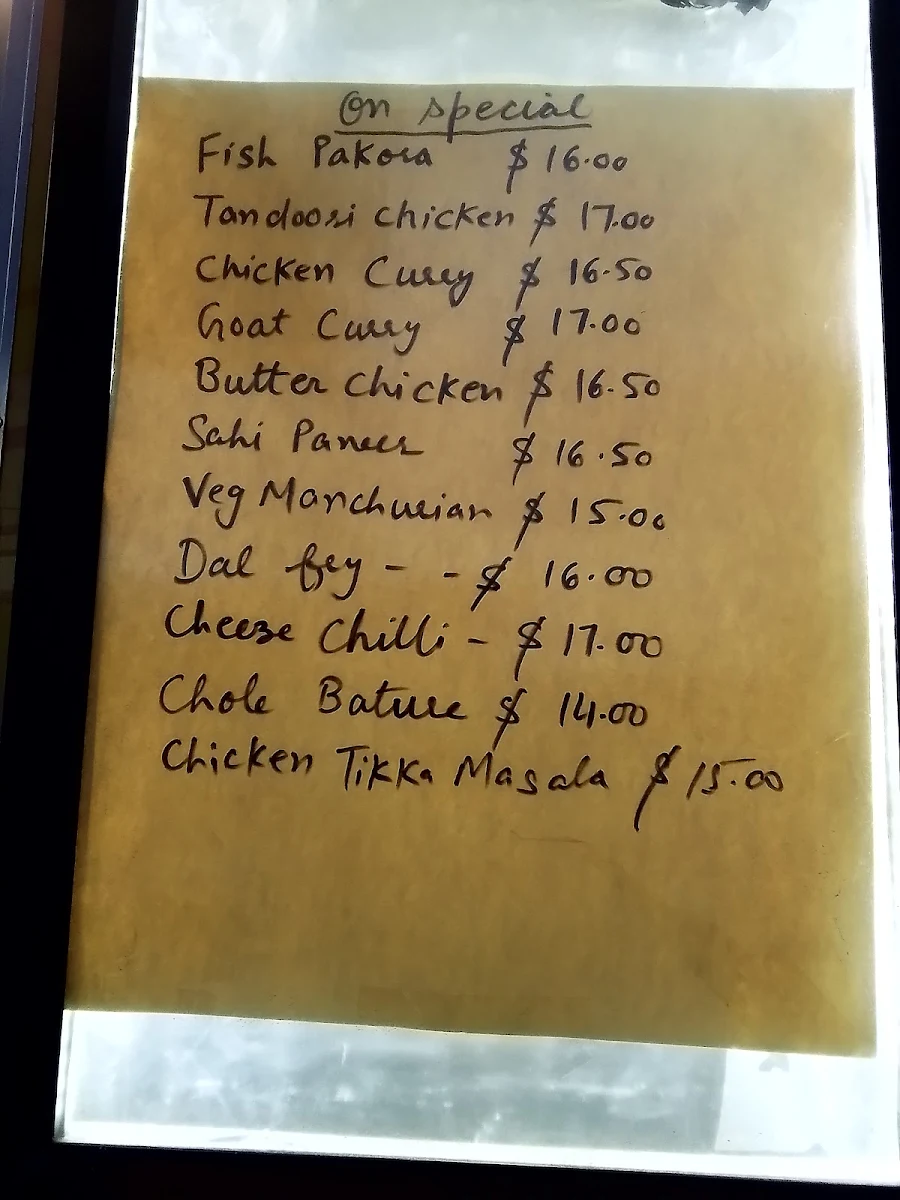 On special
Fish Pakora $ 16.00
Tandoori chicken $ 17.00
Chicken Curry $ 16.50
Goat Curry $ 17.00
Butter chicken $ 16.50
Sahi Paneer $ 16.50
Veg Manchurian $ 15.00
Dal frey - - $ 16.00
Cheese Chilli - $ 17.00
Chole Bature $ 14.00
Chicken Tikka Masala $ 15.00